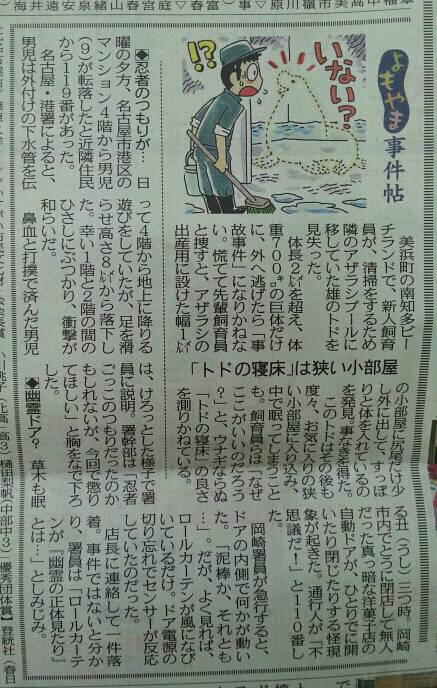 よもやま事件帖
いない?
!?
「トドの寝床」は狭い小部屋
美浜町の南知多ビー
チランドで、新人飼育
員が、清掃をするため
隣のアザラシプールに
移していた雄のトドを
見失った。
体長2㍍を超え、体
重700㌔の巨体だけ
に、外へ逃げたら「事
故事件」になりかねな
い。慌てて先輩飼育員
と捜すと、アザラシの
出産用に設けた幅1㍍
の小部屋に尻尾だけ少
し外に出して、すっぽ
りと体を入れているの
を発見。事なきを得た。
このトドはその後も
度々、お気に入りの狭
い小部屋に入り込み、
中で眠ってしまうこと
も。飼育員らは「なぜ
ここがいいのだろう
?」と、ウナギならぬ
「トドの寝床」の良さ
を測りかねている。
◆忍者のつもりが… 日
曜の夕方、名古屋市港区の
マンション4階から男児
(9)が転落したと近隣住民
から119番があった。
名古屋・港署によると、
男児は外付けの下水管を伝
って4階から地上に降りる
遊びをしていたが、足を滑
らせ高さ8㍍から落下し
た。幸い1階と2階の間の
ひさしにぶつかり、衝撃が
和らいだ。
鼻血と打撲で済んだ男児
は、けろっとした様子で署
員に説明。署幹部は「忍者
ごっこのつもりだったのか
もしれないが、今回で懲り
てほしい」と胸をなで下ろ
した。
◆幽霊ドア? 草木も眠
る丑(うし)三つ時。岡崎
市内でとうに閉店して無人
だった真っ暗な洋菓子店の
自動ドアが、ひとりでに開
いたり閉じたりする怪現
象が起きた。通行人が「不
思議だ!」と110番し
た。
岡崎署員が急行すると、
ドアの内側で何かが動い
た。「泥棒か、それとも
…」。だが、よく見れば、
ロールカーテンが風になび
いているだけ。ドア電源の
切り忘れでセンサーが反応
していたのだった。
店長に連絡して一件落
着。事件ではないと分か
り、署員は「ロールカーテ
ンが『幽霊の正体見たり』
とは…」としみじみ。